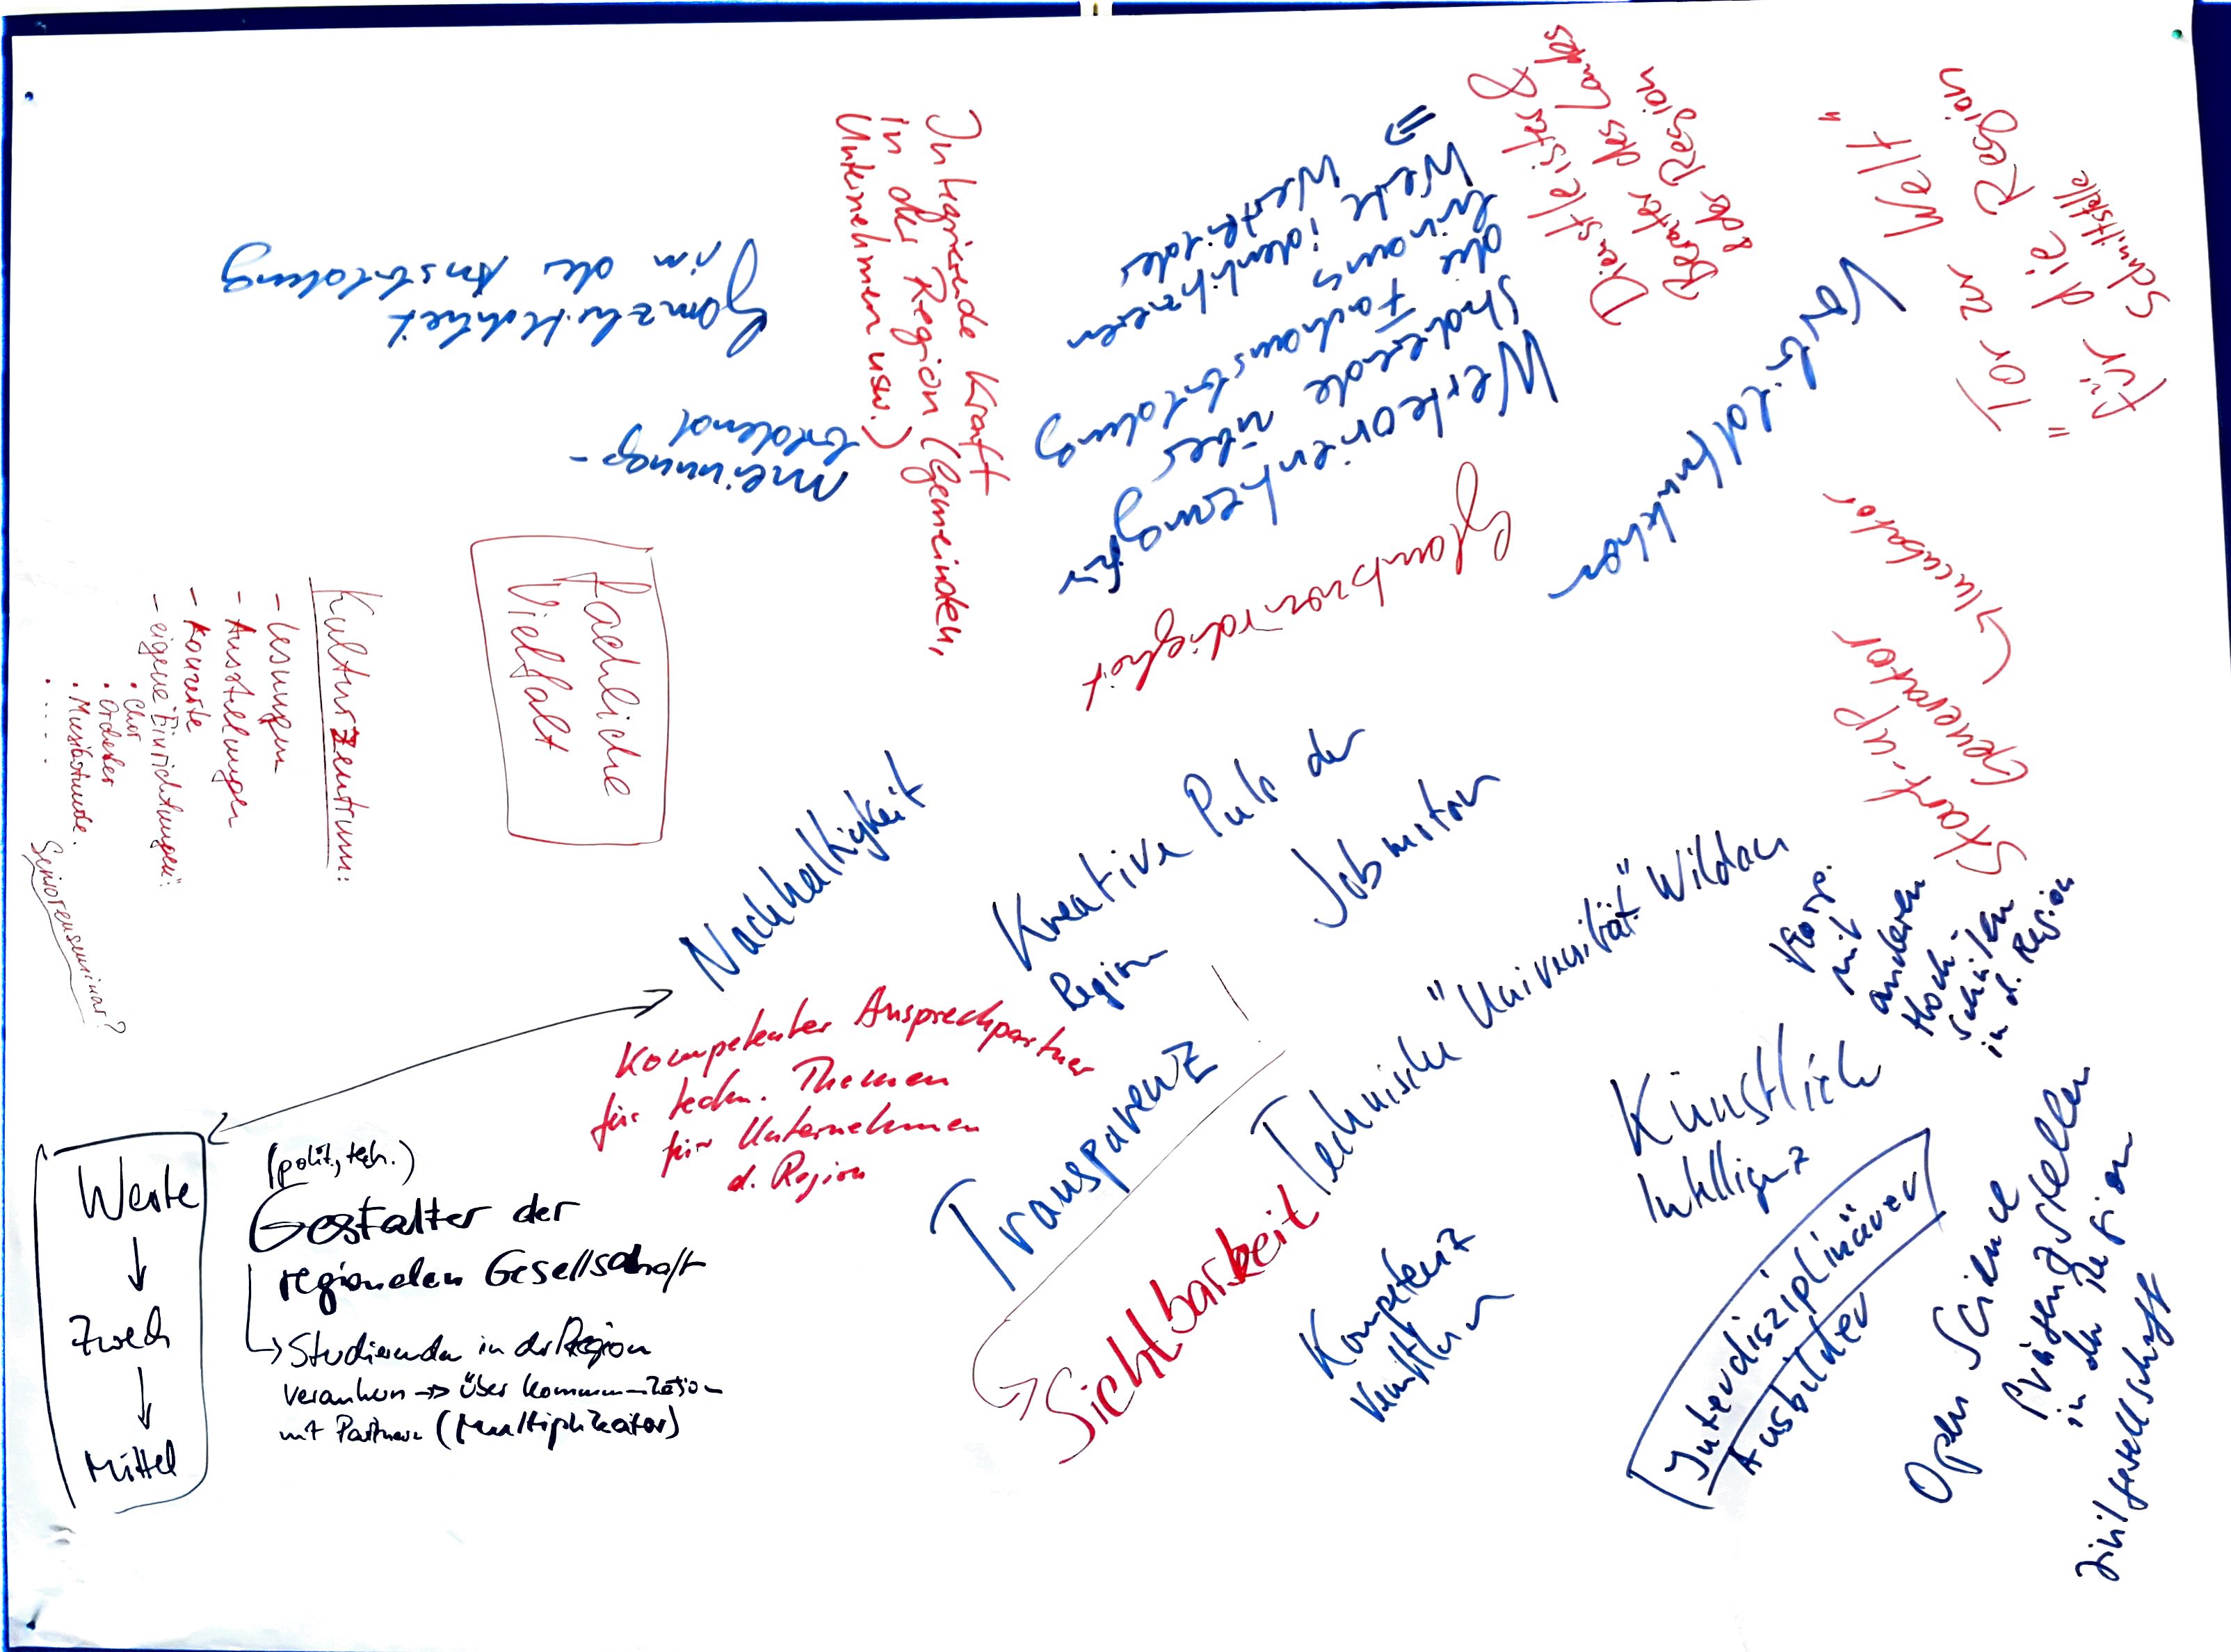 Ganzheitlichkeit
in der Ausbildung
meinungs-
bildend
Integrierende Kraft
in der Region (Gemeinden,
Unternehmen usw.)
Werteorientierung für
Studierende über
die Fachausbildung
hinaus
⇒ Werte identifizieren
Glaubwürdigkeit
Dienstleister &
Berater des Landes
& der Region
Vorbildfunktion
"Tor zur Welt"
für die Region
Schnittstelle
Start-up
Generator
→ Incubator
Kulturzentrum:
- Lesungen
- Ausstellungen
- Konzerte
- "eigene Einrichtungen":
• Chor
• Orchester
• Musikstunde
• .....
Seniorenseminar?
Fachliche
Vielfalt
Nachhaltigkeit
Kreative Puls der
Region
Jobmotor
Technische "Universität" Wildau
Kompetenter Ansprechpartner
für techn. Themen
für Unternehmen
d. Region
Transparenz
!
Sichtbarkeit
Koop.
mit
anderen
Hoch-
schulen
in d. Region
Künstliche
Intelligenz
Kompetenz
Interdisziplinärer
Ausbilder
Open Science
Präsenzstellen
in der Region
Zivilgesellschaft
Werte
↓
Zweck
↓
Mittel
(polit., tech.)
Gestalter der
regionalen Gesellschaft
→ Studierende in der Region
verankern → über Kommunikation
mit Partnern (Multiplikator)